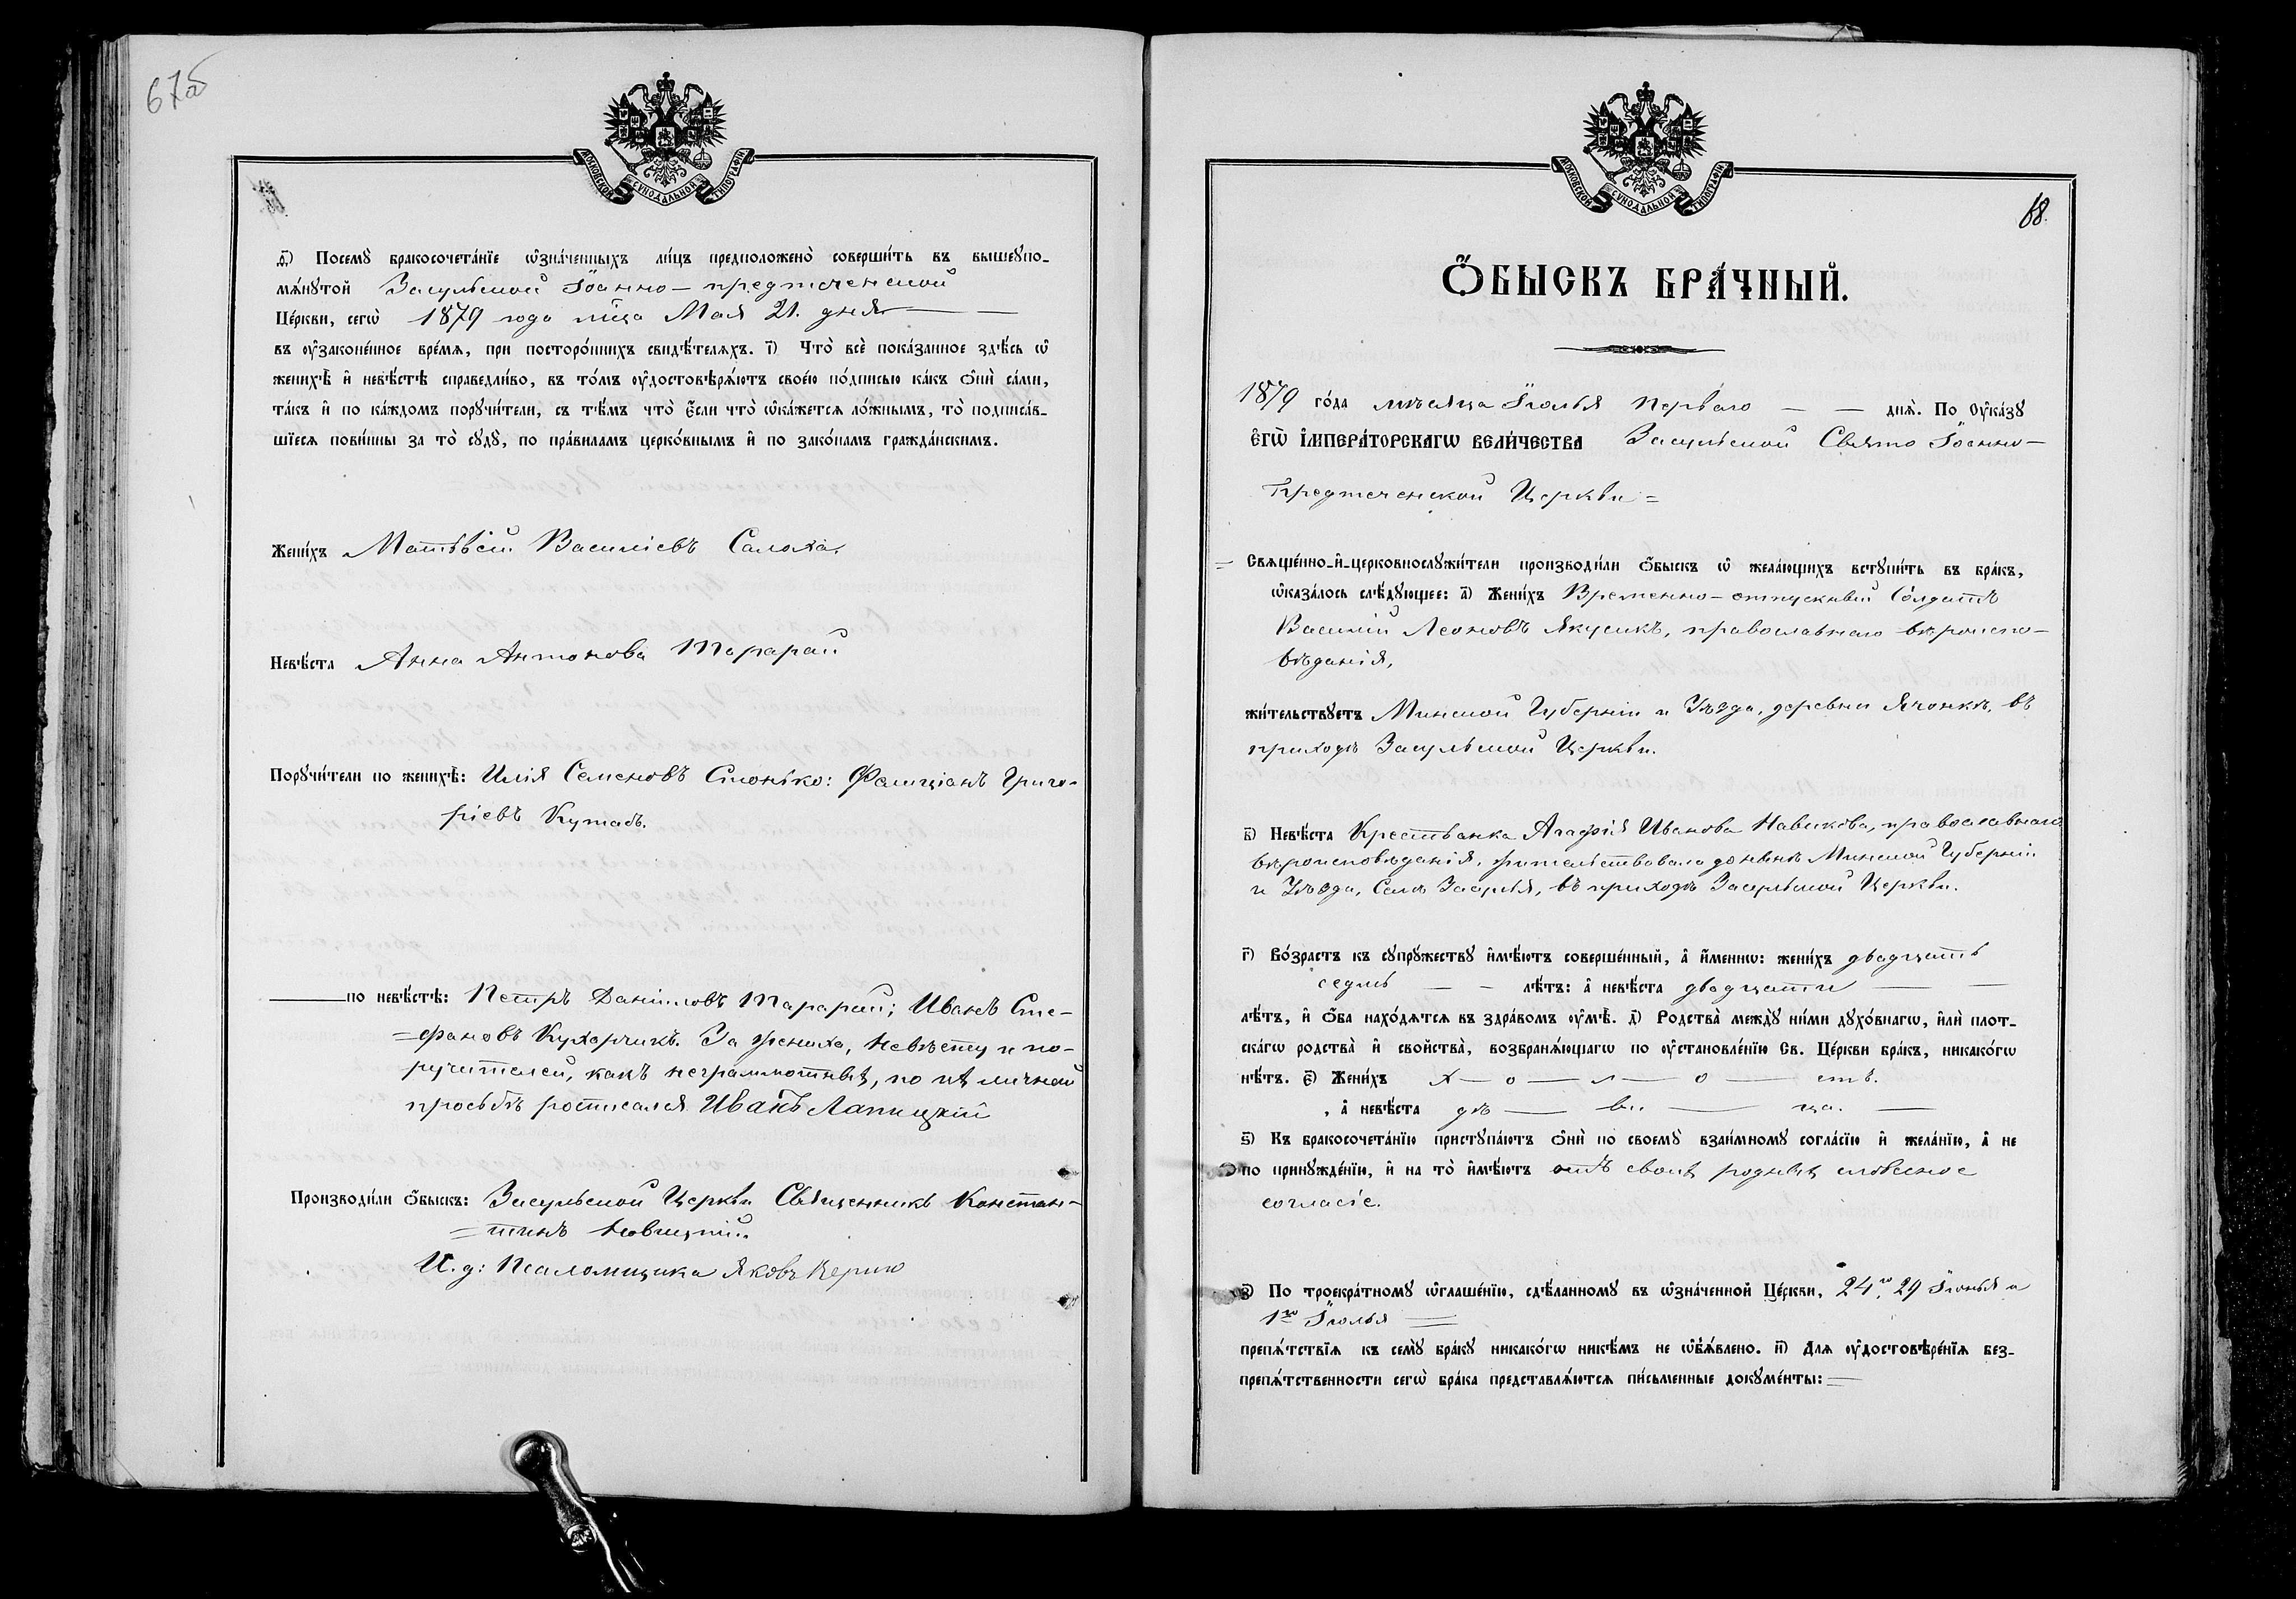 67об
МОСКОВСКОЙ СУНОДАЛЬНОЙ ТИПОГРАФІИ
д҃і) Посемꙋ̀ бракосочета́нїе ѡ҆зна́ченныхъ ли́цъ предположено̀ соверши́ть въ вышеꙋпо-
мѧ́нꙋтой Засульской Іоанно-предтеченской
Це́ркви, сегѡ̀ 1879 года м҃ца Мая 21. дня
въ ᲂу҆зако́не́нное вре́мѧ, при посторо́ннихъ свидѣ́телѧхъ. і҃) Что̀ всѐ пока́занное здѣ́сь ѡ҆
женихѣ̀ и҆ невѣ́стѣ справедли́во, въ то́мъ ᲂу҆достовѣрѧ́ютъ своéю по́дписью ка́къ ѻ҆нѝ са́ми,
та́къ и҆ по ка́ждомъ порꙋчи́тели, съ тѣ́мъ что̀ є҆́сли что̀ ѡ҆ка́жетсѧ ло́жнымъ, то̀ подписа́в-
шїесѧ пови́нны за то̀ сꙋдꙋ̀, по пра́виламъ церко́внымъ и҆ по зако́намъ гражда́нскимъ.
Жени́хъ Матѳѣй Василіевъ Салоха.
Невѣ́ста Анна Антонова Тарарай
Порꙋчи́тели по женихѣ̀: Илія Семеновъ Слонько: Фелиціанъ Григо-
ріевъ Кутасъ.
по невѣ́стѣ: Петръ Даніиловъ Тарарай; Иванъ Сте-
=фановъ Кухарчикъ. За жениха, невѣсту и по-
ручителей, какъ неграммотныхъ, по ихъ личной
просьбѣ росписался Иванъ Лапицкій
Производи́ли ѻ҆́быскъ: Засульской Церкви Священникъ Констан-
=тинъ Новицкій.
И. д: Псаломщика Яковъ
68.
МОСКОВСКОЙ СУНОДАЛЬНОЙ ТИПОГРАФІИ
Ѻ҆́БЫСКЪ БРА́ЧНЫЙ.
1879 го́да мѣсяца Іюлья перваго — — днѧ̀. По Оу҆ка́зꙋ
Є҆ГѠ̀ І҆МПЕРА́ТОРСКАГѠ ВЕЛИ́ЧЕСТВА Засульской Свято Іоанно-
Предтеченской Церкви =
Свѧще́нно-и҆-церковнослꙋжи́тели производи́ли ѻ҆́быскъ ѡ҆ жела́ющихъ встꙋпи́ть въ бра́къ,
ѡ҆каза́лось слѣ́дꙋющее: а҃) Жени́хъ Временно-отпускный Солдатъ
Василій Леоновъ Якусикъ, православнаго вѣроиспо-
вѣданія,
жи́тельствꙋетъ Минской Губерніи и Уѣзда, деревни Ячонкѣ, въ
приходѣ Засульской Церкви.
в҃) Невѣ́ста Крестьянка Агафія Иванова Навикова, православнаго
вѣроисповѣданія, жительствовала до нынѣ Минской Губерніи
и Уѣзда, Селѣ Засульѣ, въ приходѣ Засульской Церкви.
г҃) Во́зрастъ къ сꙋпрꙋ́жествꙋ и҆мѣ́ютъ соверше́нный, а҆ и҆́меннѡ: жени́хъ двадцать
седмь — — лѣ́тъ: а҆ невѣ́ста двадцати — —
лѣ́тъ, и҆ ѻ҆́ба нахо́дѧтсѧ въ здра́вомъ ᲂу҆мѣ̀. д҃) Родства̀ междꙋ̀ ни́ми дꙋхо́внагѡ, и҆лѝ плот-
ска́гѡ родства̀ и҆ свойства̀, возбранѧ́ющагѡ по ᲂу҆становле́нїю Св. Це́ркви бра́къ, никако́гѡ
нѣ́тъ. є҃) Жени́хъ х — о — л — о — стъ.
, а҆ невѣ́ста дѣ — ви — ца. —
ѕ҃) Къ бракосочета́нїю пристꙋпа́ютъ ѻ҆нѝ по своемꙋ̀ взаи́мномꙋ согла́сїю и҆ жела́нїю, а҆ не
по принꙋжде́нїю, и҆ на то̀ и҆мѣ́ютъ отъ своихъ родныхъ словесное
согласіе.
з҃) По троекра́тномꙋ ѡ҆глаше́нїю, сдѣ́ланномꙋ въ ѡ҆зна́ченной Це́ркви, 24го, 29 Іюнья и
1го Іюлья
препѧ́тствїѧ къ семꙋ̀ бра́кꙋ никако́гѡ никѣ́мъ не ѡ҆б̾ѧ́влено. и҃) Длѧ ᲂу҆достовѣре́нїѧ без-
препѧ́тственности сегѡ̀ бра́ка представлѧ́ютсѧ пи́сьменные докꙋме́нты: =